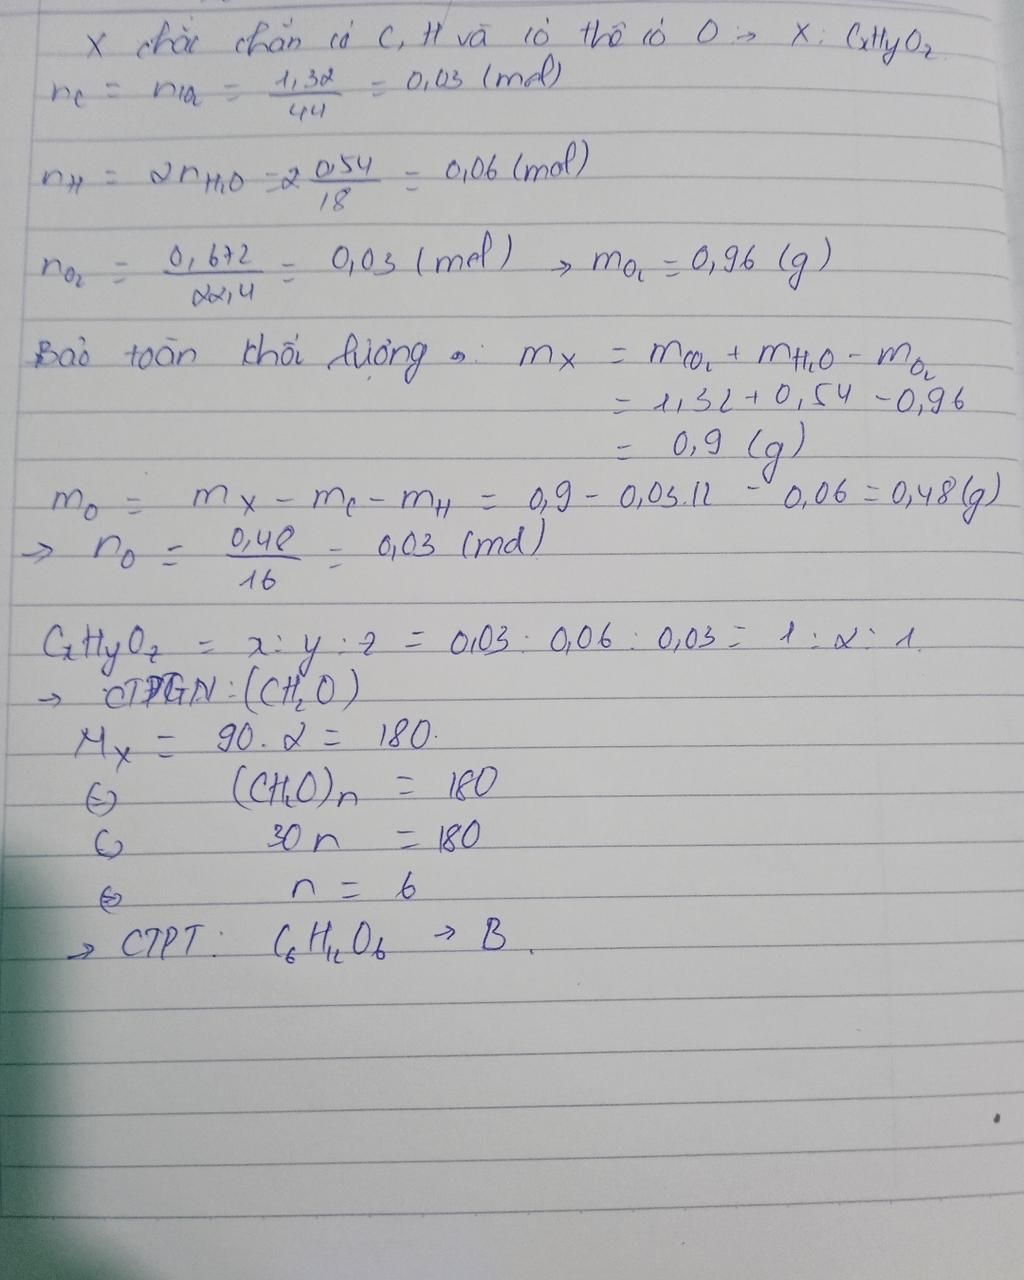 X chắc chắn có C, H và có thể có O → X: CxHyOz
nC = nCO2 = 1,32/44 = 0,03 (mol)
nH = 2nH2O = 2 0,54/18 = 0,06 (mol)
nO2 = 0,672/22,4 = 0,03 (mol) → mO2 = 0,96 (g)
Bảo toàn khối lượng : mX = mCO2 + mH2O - mO2
= 1,32 + 0,54 - 0,96
= 0,9 (g)
mO = mX - mC - mH = 0,9 - 0,03.12 - 0,06 = 0,48 (g)
→ nO = 0,48/16 = 0,03 (mol)
CxHyOz = x : y : z = 0,03 : 0,06 : 0,03 = 1 : 2 : 1.
→ CTĐGN : (CH2O)
MX = 90.2 = 180.
⇔ (CH2O)n = 180
⇔ 30n = 180
⇔ n = 6
→ CTPT : C6H12O6 → B.